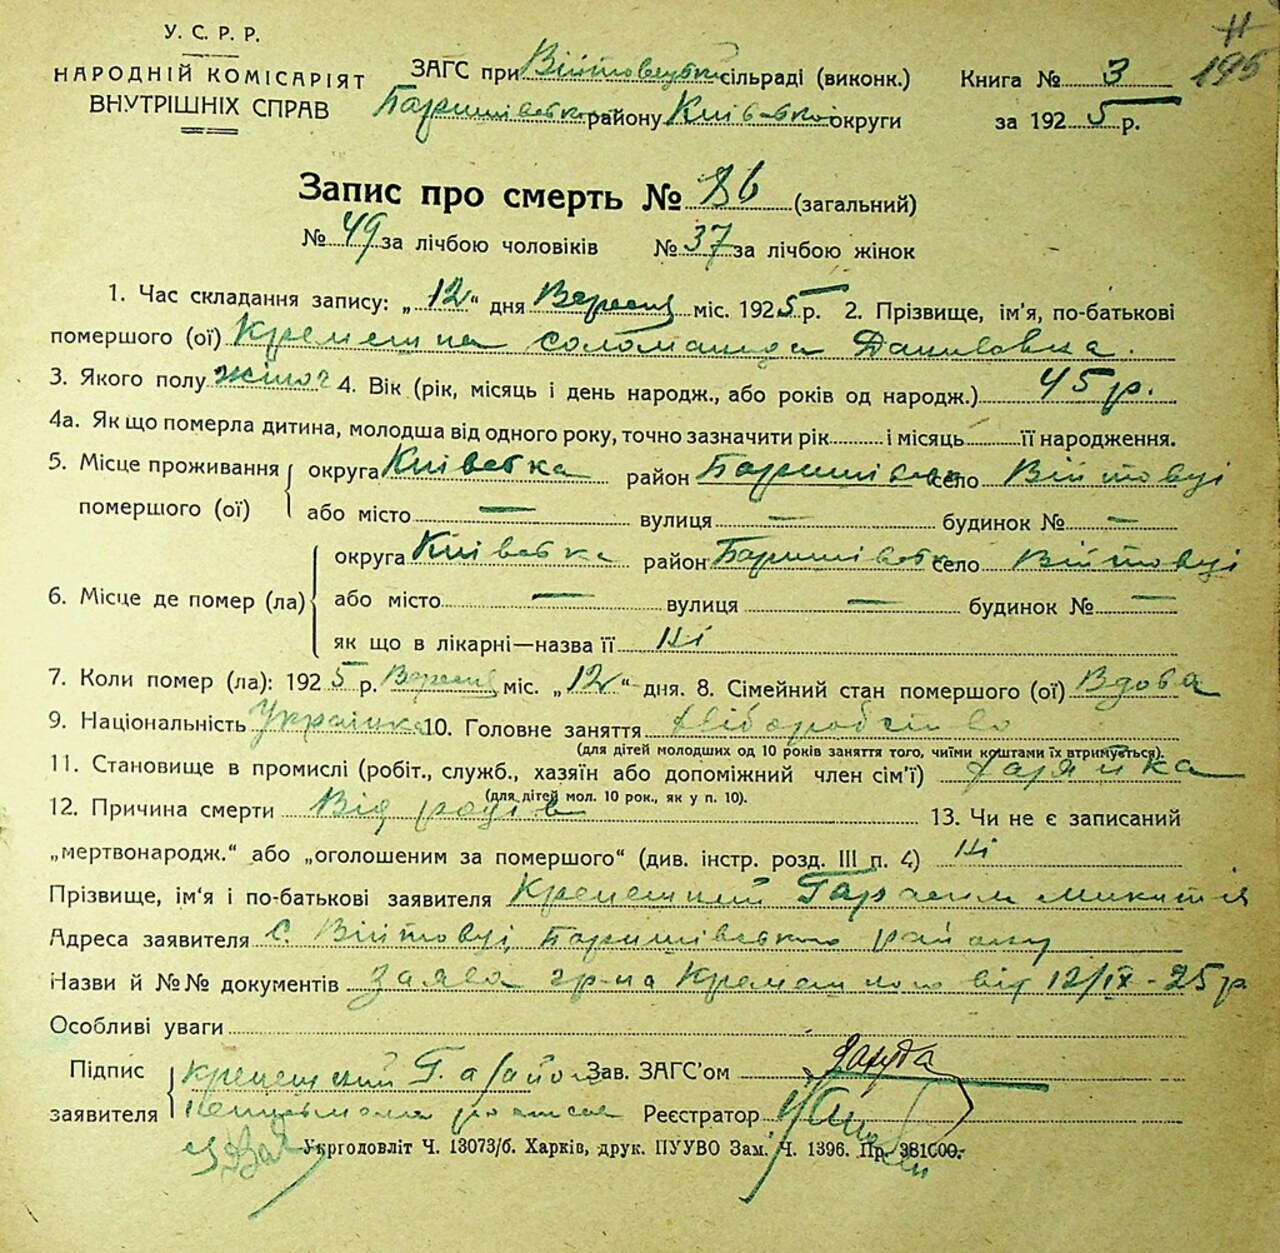 У. С. Р. Р.
НАРОДНІЙ КОМІСАРІЯТ
ВНУТРІШНІХ СПРАВ
ЗАГС при Війтовецькій сільраді (виконк.)
Баришівского району Київської округи
Книга № 3
за 1925 р.
11
195
Запис про смерть № 86 (загальний)
№ 49 за лічбою чоловіків № 37 за лічбою жінок
1. Час складання запису: „12“ дня Вересня міс. 1925 р. 2. Прізвище, ім'я, по-батькові
помершого (ої) Соломанида Даниловна.
3. Якого полу жіноч 4. Вік (рік, місяць і день народж., або років од народж.) 45 р.
4а. Як що померла дитина, молодша від одного року, точно зазначити рік і місяць її народження.
5. Місце проживання помершого (ої) округа Київська район Баришівськ село Війтовці
або місто — вулиця — будинок № —
6. Місце де помер (ла) округа Київська район Баришівськ село Війтовці
або місто — вулиця — будинок № —
як що в лікарні—назва її Ні
7. Коли помер (ла): 1925 р. Вересня міс. „12“ дня. 8. Сімейний стан помершого (ої) Вдова
9. Національність Українка 10. Головне заняття хліборобство
(для дітей молодших од 10 років заняття того, чиїми коштами їх втримується).
11. Становище в промислі (робіт., служб., хазяїн або допоміжний член сім'ї) хазяйка
(для дітей мол. 10 рок., як у п. 10).
12. Причина смерти Від родів 13. Чи не є записаний
„мертвонародж.“ або „оголошеним за помершого“ (див. інстр. розд. III п. 4) Ні
Прізвище, ім'я і по-батькові заявителя Гарасим
Адреса заявителя С. Війтовці, Баришівського району
Назви й №№ документів Заява гр-на від 12/IX-25 р
Особливі уваги
Підпис заявителя Г. а за його Зав. ЗАГС'ом
Реєстратор
Укрголовліт Ч. 13073/б. Харків, друк. ПУУВО Зам. Ч. 1396. Пр. 381000.